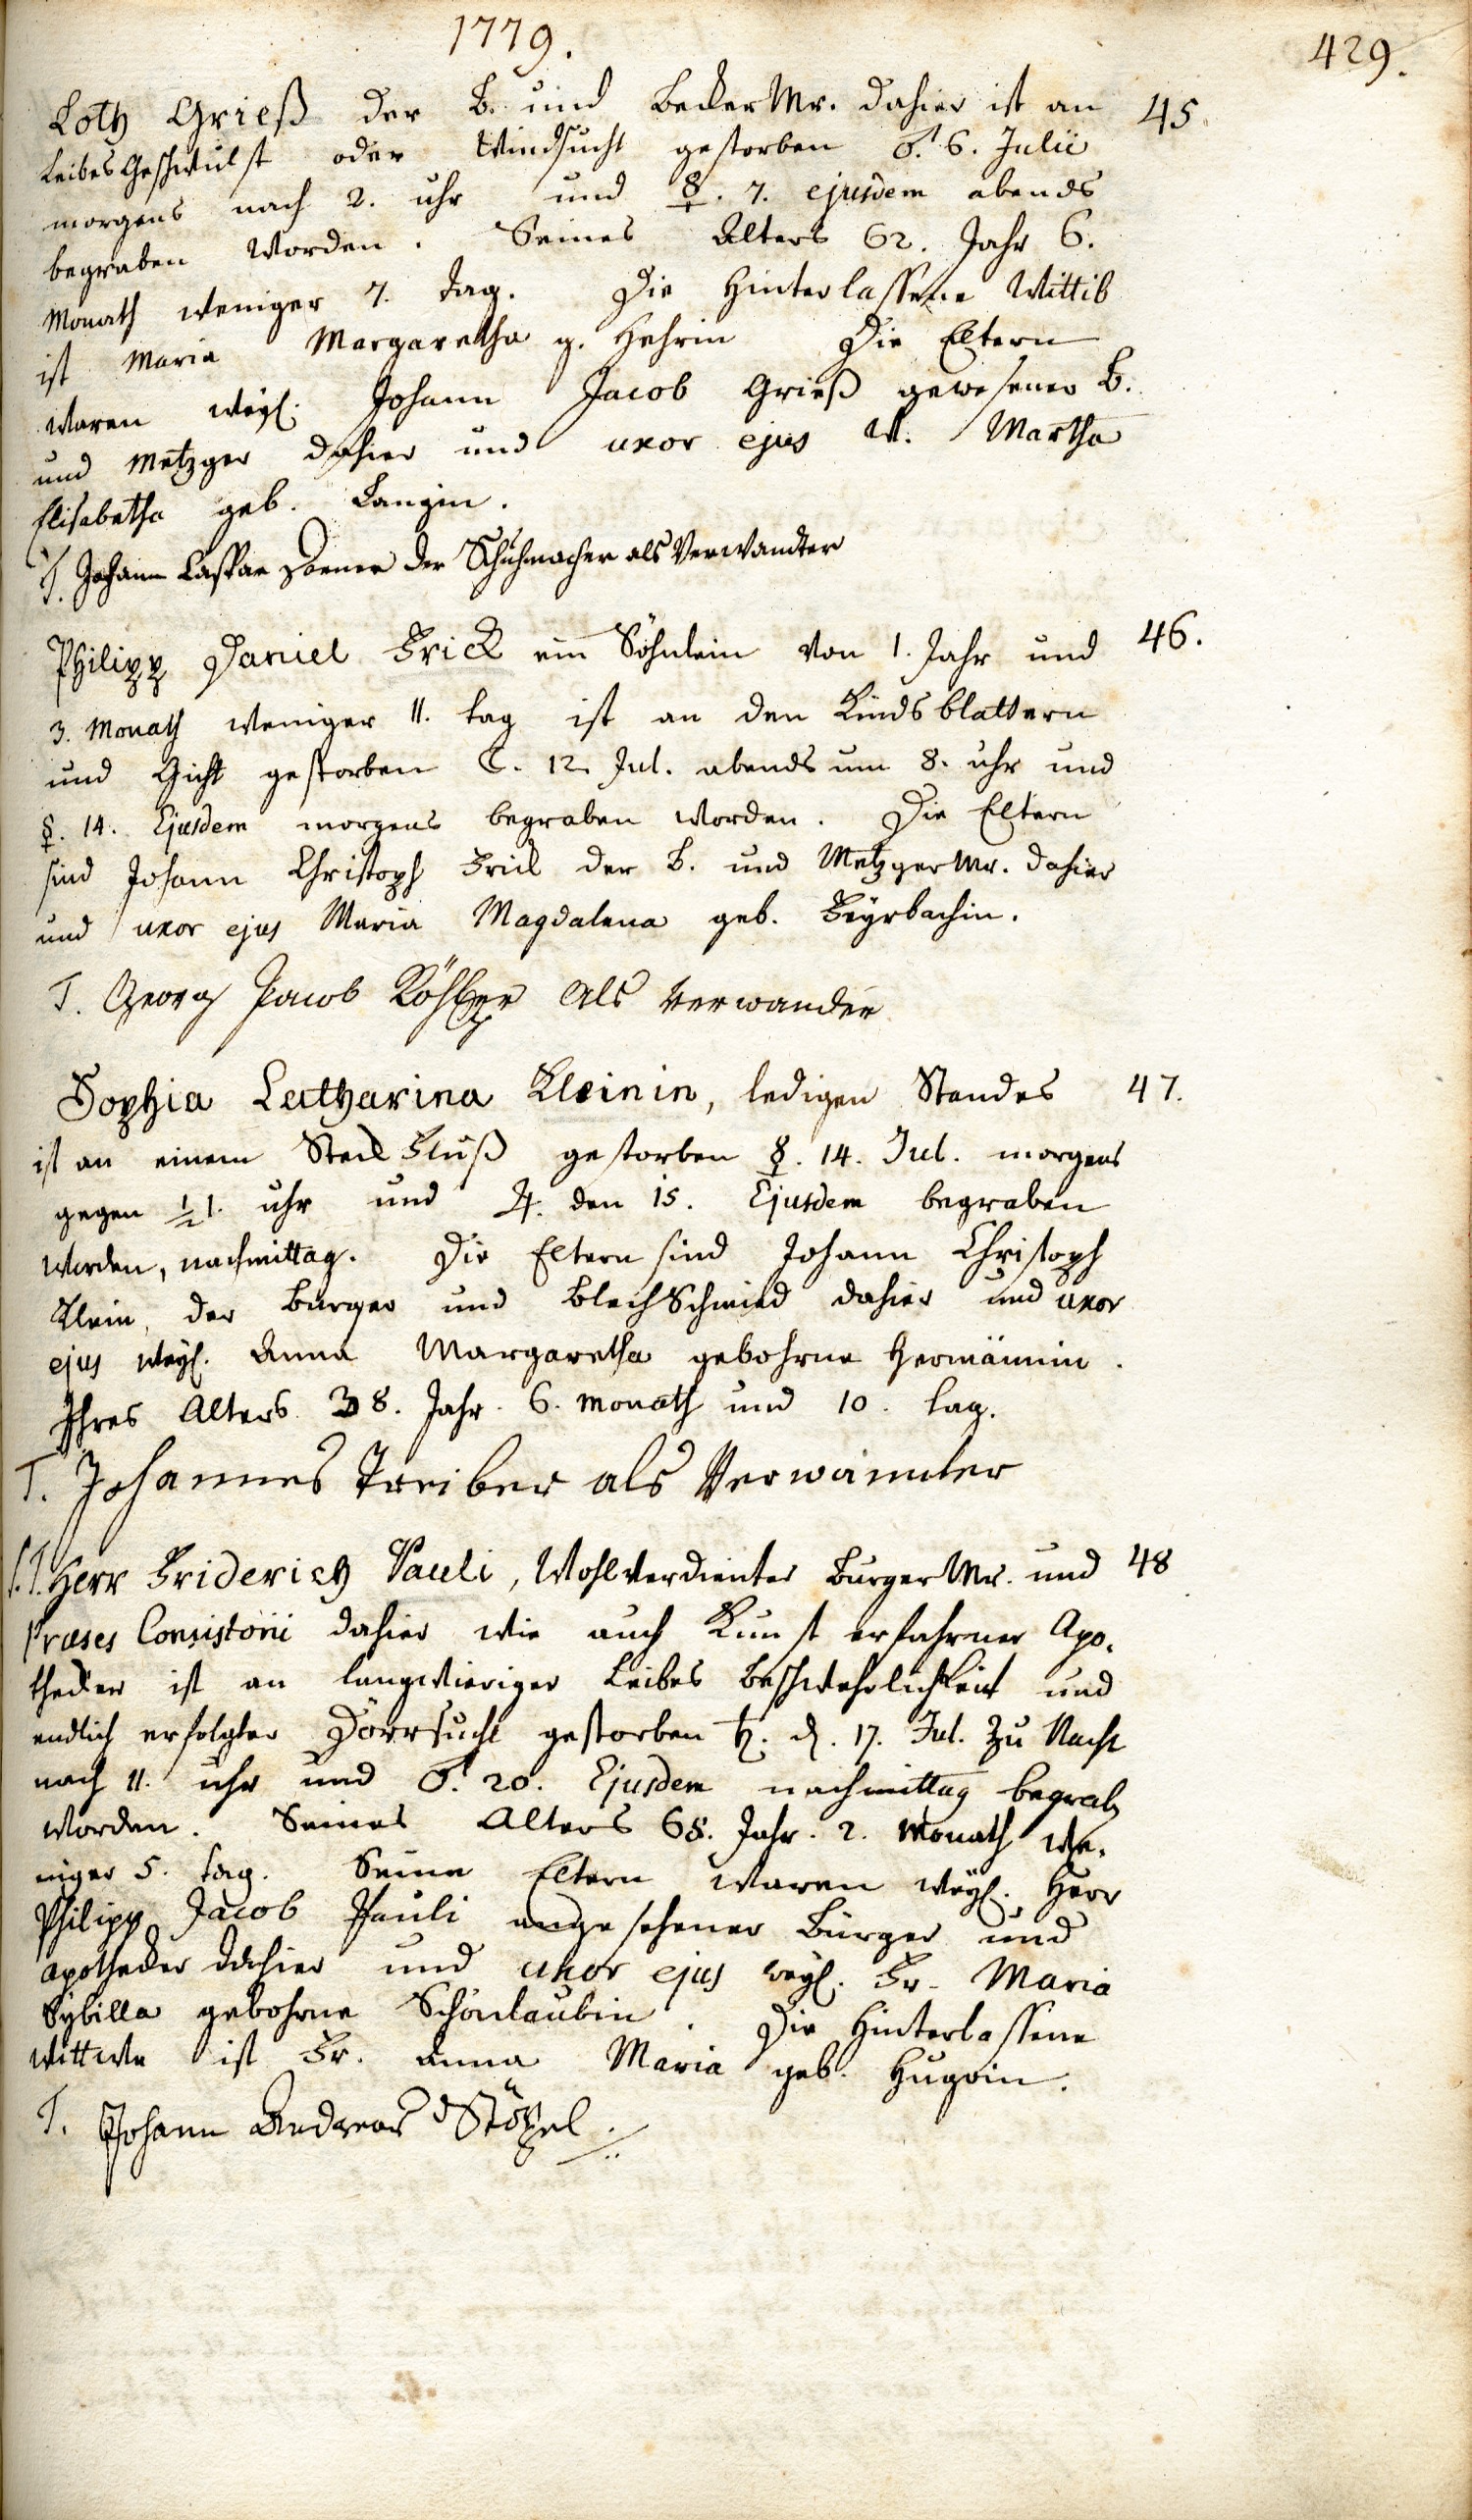 1779.
429.
Loth Grieß der B. und Becker Mr. dahier ist an 45.
Leibes Geschwulst oder Windsucht gestorben ♂. 6. Julii
morgens nach 2. uhr und ☿. 7. ejusdem abends
begraben worden. Seines Alters 62. Jahr 6.
Monath weniger 7. Tag. Die Hinterlassene Wittib
ist Maria Margaretha g. Hehrin Die Eltern
waren weyl. Johann Jacob Grieß gewesener B.
und Metzger dahier und uxor ejus W. Martha
Elisabetha geb. Langin.
T. Johann Caspar Dörner der Schuhmacher als Verwandter
Philipp Daniel Frick ein Söhnlein von 1. Jahr und 46.
3. Monath weniger 11. tag ist an den Kinds blattern
und Gicht gestorben ☾. 12. Jul. abends um 8. uhr und
☿. 14. Ejusdem morgens begraben worden. Die Eltern
sind Johann Christoph Frick der B. und Metzger Mr. dahier
und uxor ejus Maria Magdalena geb. Beyrbachin.
T. Georg Jacob Köhler als verwander
Sophia Catharina Kleinin, ledigen Standes 47.
ist an einem Steck Fluß gestorben ☿. 14. Jul. morgens
gegen ½ 1. uhr und ♃. den 15. Ejusdem begraben
worden, nachmittag. Die Eltern sind Johann Christoph
Klein, der Burger und Blech Schmied dahier und uxor
ejus weyl. Anna Margaretha gebohrne Hermännin.
Ihres Alters 38. Jahr. 6. Monath und 10. tag.
T. Johannes Treiber als Verwannter
S.T. Herr Friderich Pauli, Wohlverdienter Burger Mr. und 48
Præses Consistorii dahier wie auch Kunst erfahrner Apo-
thecker ist an langwieriger Leibes beschwehrlichkeit und
endlich erfolgter Dörrsucht gestorben ♄. d. 17. Jul. zu Nacht
nach 11. uhr und ♂. 20. Ejusdem nachmittag begrab
worden. Seines Alters 68. Jahr. 2. Monath we-
niger 5. tag. Seine Eltern waren weyl. Herr
Philipp Jacob Pauli angesehener Burger und
Apothecker dahier und uxor ejus weyl. Fr. Maria
Sybilla gebohrne Schönlaubin. Die Hinterlassene
Wittwe ist Fr. Anna Maria geb. Hugoin.
T. Johann Andreas Stötzel.